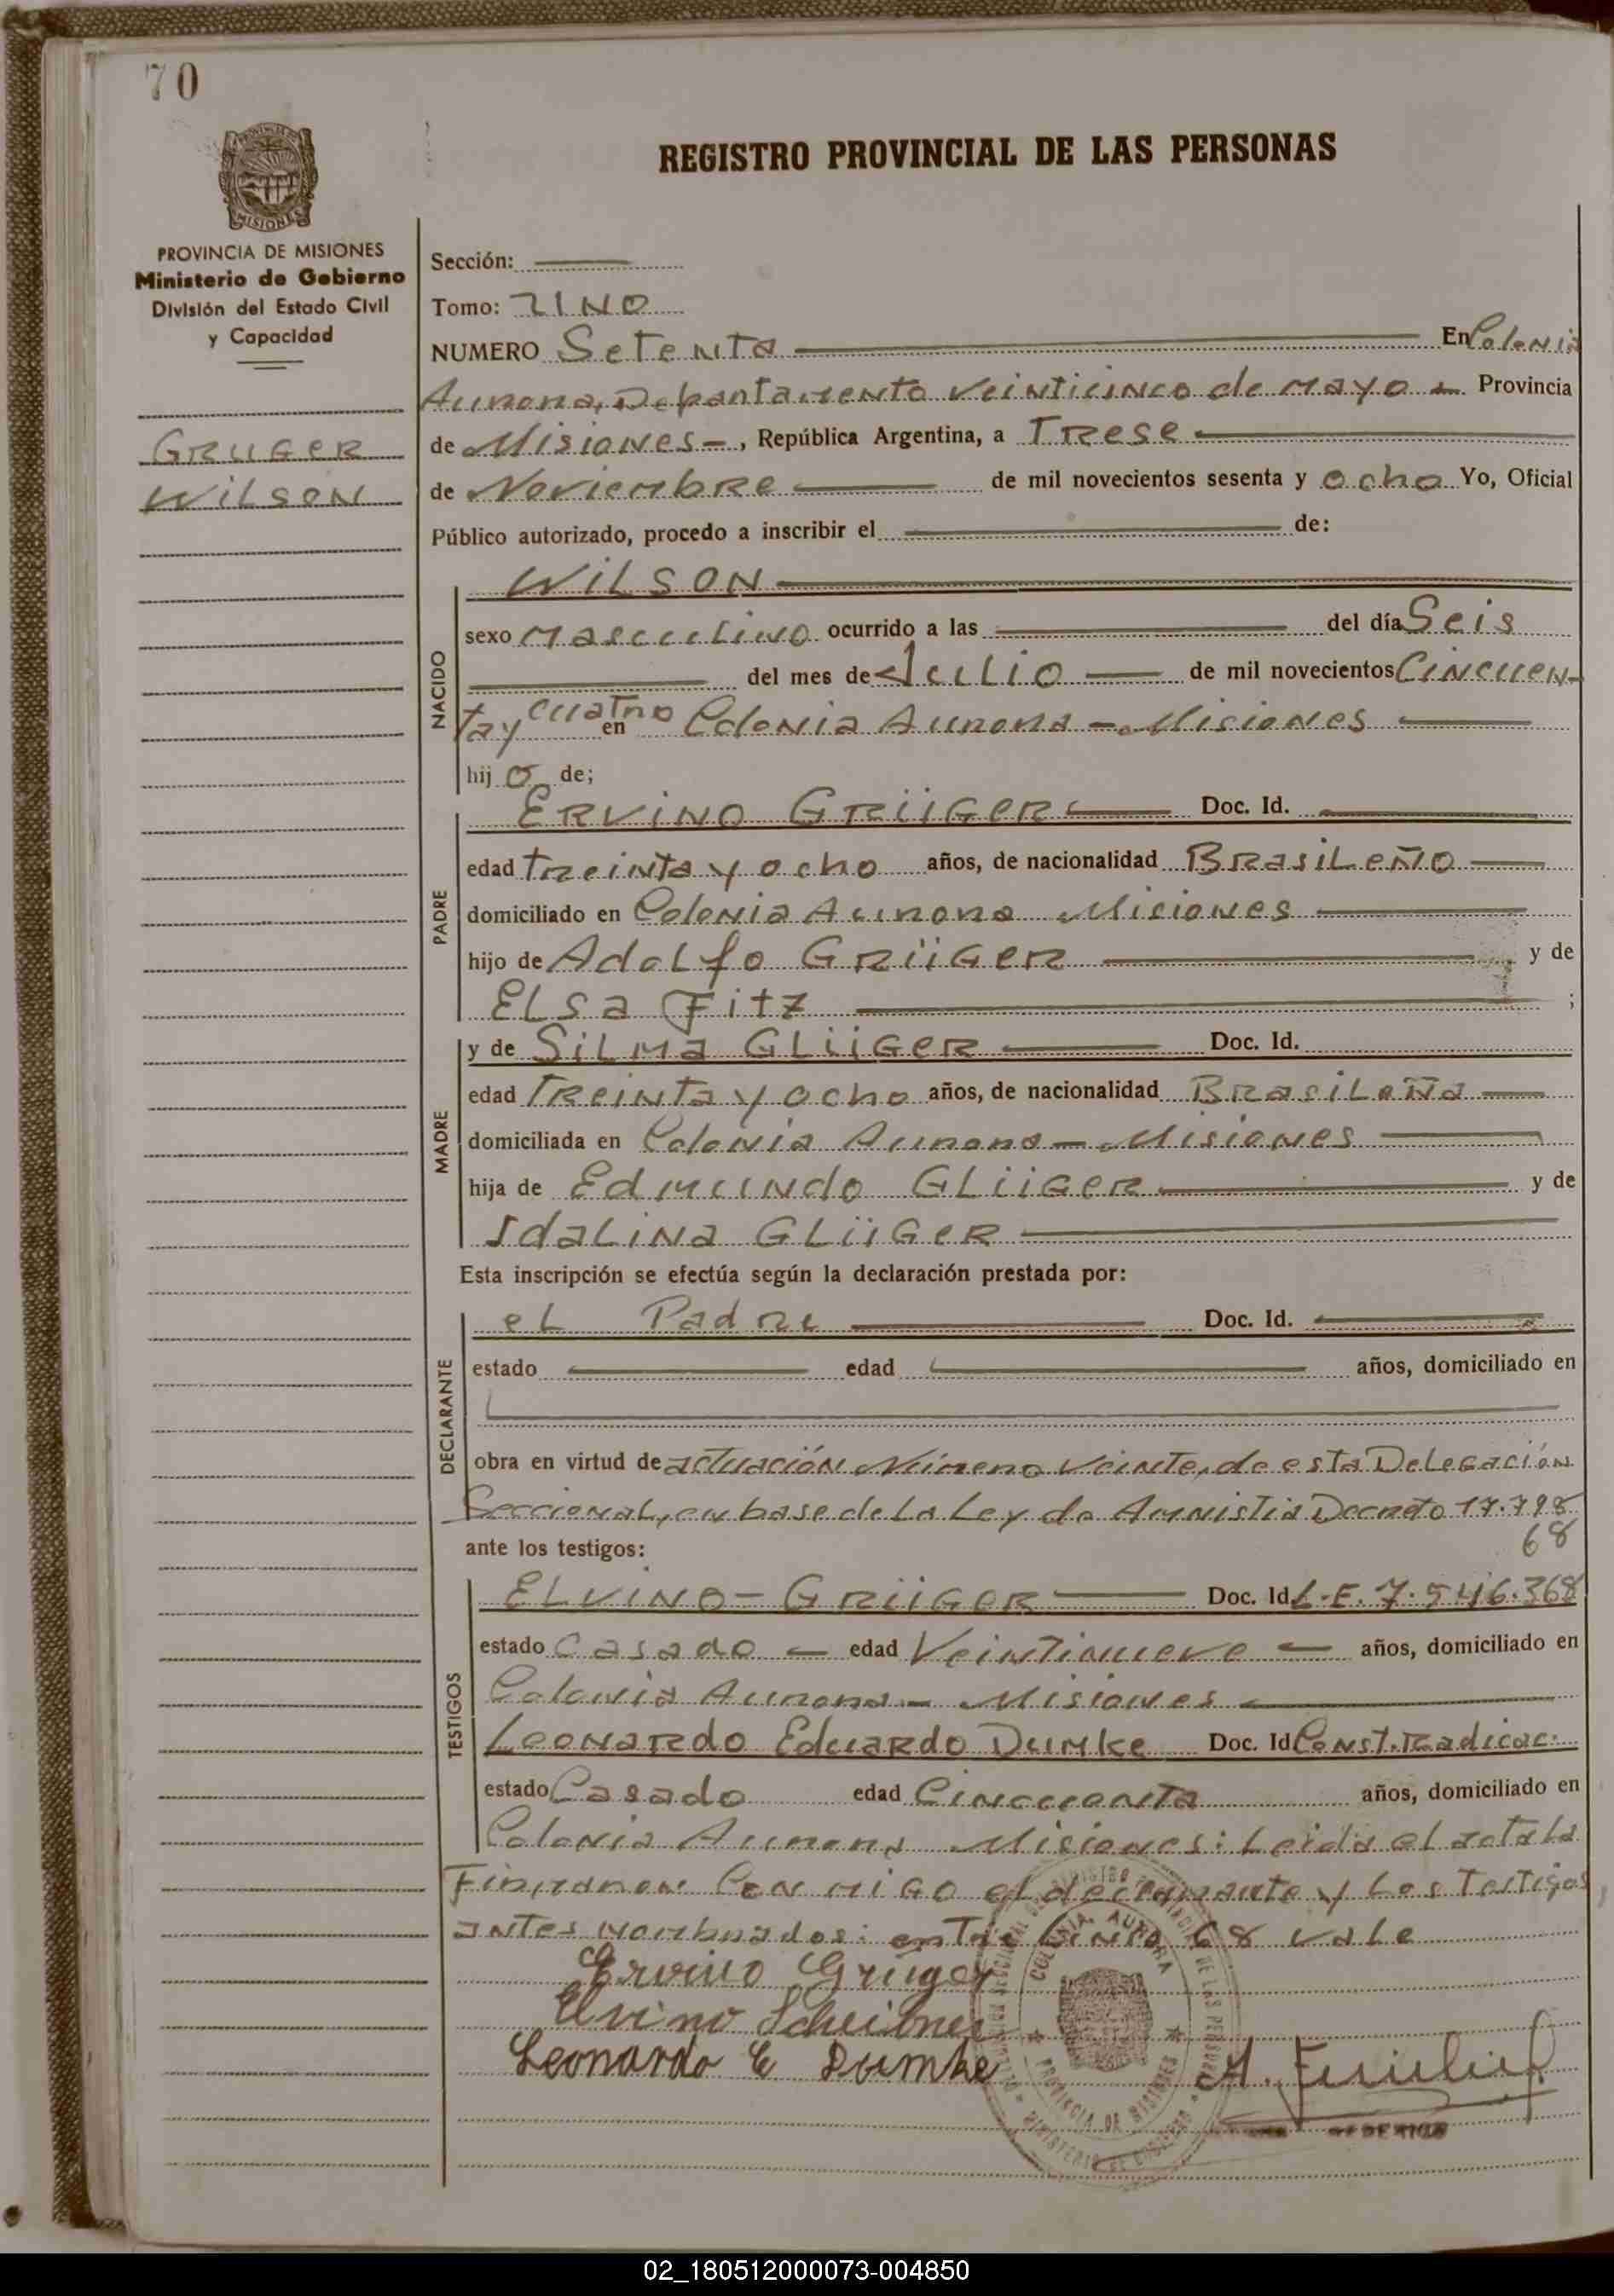 70
REGISTRO PROVINCIAL DE LAS PERSONAS
MISIONES
PROVINCIA DE MISIONES
Ministerio de Gobierno
División del Estado Civil
y Capacidad
GRUGER
WILSON
Sección:
Tomo: UNO
NUMERO Setenta En Colonia
Aurora, Departamento Veinticinco de Mayo Provincia
de Misiones, República Argentina, a Trese
de Noviembre de mil novecientos sesenta y ocho Yo, Oficial
Público autorizado, procedo a inscribir el de:
NACIDO
WILSON
sexo Masculino ocurrido a las del día Seis
del mes de Julio de mil novecientos Cincuen-
ta y cuatro en Colonia Aurora - Misiones
hijo de;
PADRE
ERVINO GRÜGER Doc. Id.
edad treinta y ocho años, de nacionalidad Brasileño
domiciliado en Colonia Aurora Misiones
hijo de Adolfo GRÜGER y de
ELSA Fitz ;
MADRE
y de SILMA GLÜGER Doc. Id.
edad treinta y ocho años, de nacionalidad Brasileña
domiciliada en Colonia Aurora - Misiones
hija de Edmundo GLÜGER y de
IdaLina GLÜGER
Esta inscripción se efectúa según la declaración prestada por:
DECLARANTE
el Padre Doc. Id.
estado edad años, domiciliado en
obra en virtud de actuación Número Veinte, de esta Delegación
Seccional, en base de La Ley de Amnistia Decreto 17.798
68
ante los testigos:
TESTIGOS
ELVINO - GRÜGER Doc. Id L.E. 7.546.368
estado Casado edad Veintinueve años, domiciliado en
Colonia Aurora - Misiones
Leonardo Eduardo Dumke Doc. Id Const. Radicac.
estado Casado edad Cincuenta años, domiciliado en
Colonia Aurora Misiones: Leida el acta La
Firmaron Conmigo el declarante y Los Testigos
antes nombrados: entre Linea 68 vale
Ervino Grüger
Elvino
Leonardo E Dumke
COLONIA AURORA
PROVINCIA DE MISIONES
02_180512000073-004850